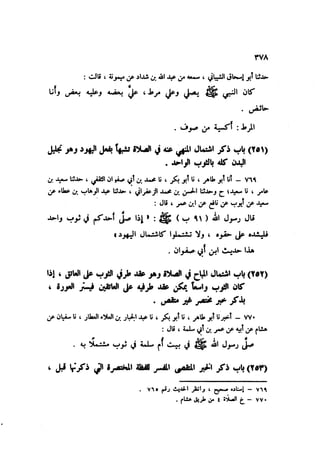 ٣٧٨
حدثنا أبو إسحاق الشيباني ، سمعه من عبد الله بن شداد عن ميمونة ، قالت :
كان النبي ﷺ يصلي وعلي مرط ، علي بعضه وعليه بعض وأنا
حائض .
المرط : أكسية من صوف .
(٢٥١) باب ذكر اشتمال المنهي عنه في الصلاة تشبهاً بفعل اليهود وهو تجليل
البدن كله بالثوب الواحد .
٧٦٩ – أنا أبو طاهر ، نا أبو بكر ، نا محمد بن أبي صفوان الثقفي ، حدثنا سعيد بن
عامر ، نا سعيد ؛ ح وحدثنا الحسن بن محمد الزعفراني ، حدثنا عبد الوهاب بن عطاء عن
سعيد عن أيوب عن نافع عن ابن عمر ، قال :
قال رسول الله (٩١ ب) ﷺ : « إذا صلى أحدكم في ثوب واحد
فليشده على حقوه ، ولا تشتملوا كاشتمال اليهود»
هذا حديث ابن أبي صفوان .
(٢٥٢) باب ذكر اشتمال المباح في الصلاة وهو عقد طرفي الثوب على العاتق ، إذا
كان الثوب واسعاً يمكن عقد طرفيه على العاتقين فيستر العورة ،
بذكر خبر مختصر غير متقصى .
٧٧٠ – أخبرنا أبو طاهر ، نا أبو بكر ، نا عبد الجبار بن العلاء العطار ، نا سفيان عن
هشام عن أبيه عن عمر بن أبي سلمة ، قال :
صلى رسول الله ﷺ في بيت أم سلمة في ثوب مشتملاً به .
(٢٥٣) باب ذكر الخبر المتقصى المفسر للفظة المختصرة التي ذكرتها قبل ،
٧٦٩ – إسناده صحيح ، وانظر الحديث رقم ٧٦٥ .
٧٧٠ – خ الصلاة ٤ من طريق هشام .